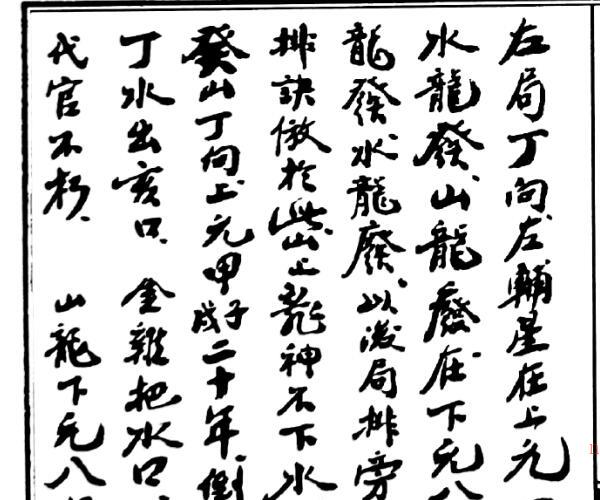 右局丁向左輔星在上元
水龍發山龍廢在下元八
龍發水龍廢以後局排旁
排訣倣於此山上龍神不下水
癸山丁向上元甲子戌二十年倒
丁水出亥口金雞把水口
代官不朽山龍下元八